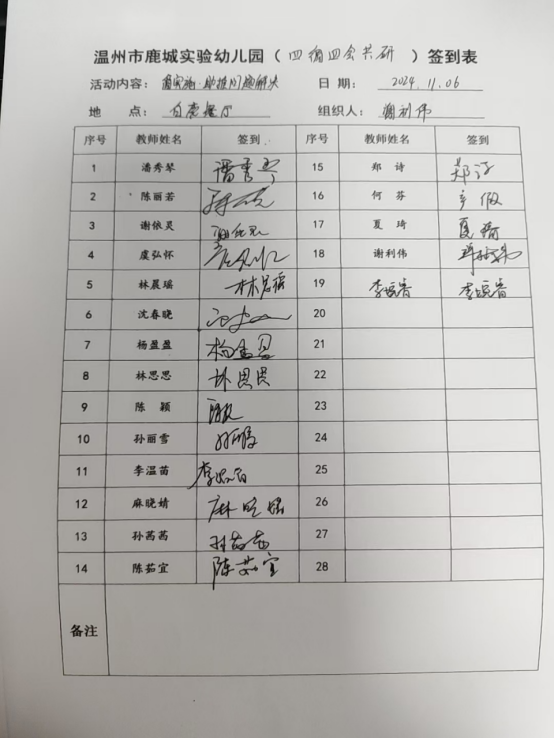 温州市鹿城实验幼儿园（四循四会共研）签到表
活动内容： 日 期：2024.11.06
地 点： 组织人：谢利伟
序号 教师姓名 签到 序号 教师姓名 签到
1 潘秀琴 潘秀琴 15 郑 诗 郑诗
2 陈丽若 16 何 芬
3 谢依灵 17 夏 琦 夏琦
4 虞弘怀 18 谢利伟
5 林晨瑶 林晨瑶 19 李婉睿 李婉睿
6 沈春晓 20
7 杨盈盈 杨盈盈 21
8 林思思 林思思 22
9 陈 颖 23
10 孙丽雪 24
11 李温苗 25
12 麻晓婧 麻晓婧 26
13 孙茜茜 27
14 陈茹宜 陈茹宜 28
备注